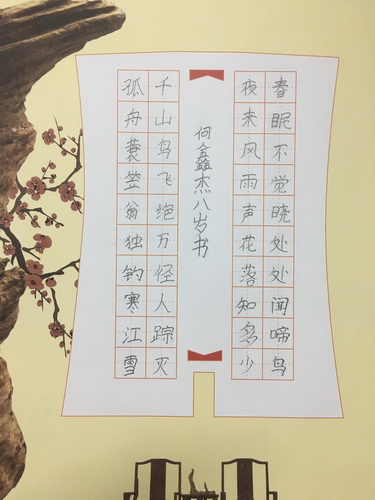 春眠不觉晓处处闻啼鸟
夜来风雨声花落知多少
何鑫杰八岁书
千山鸟飞绝万径人踪灭
孤舟蓑笠翁独钓寒江雪